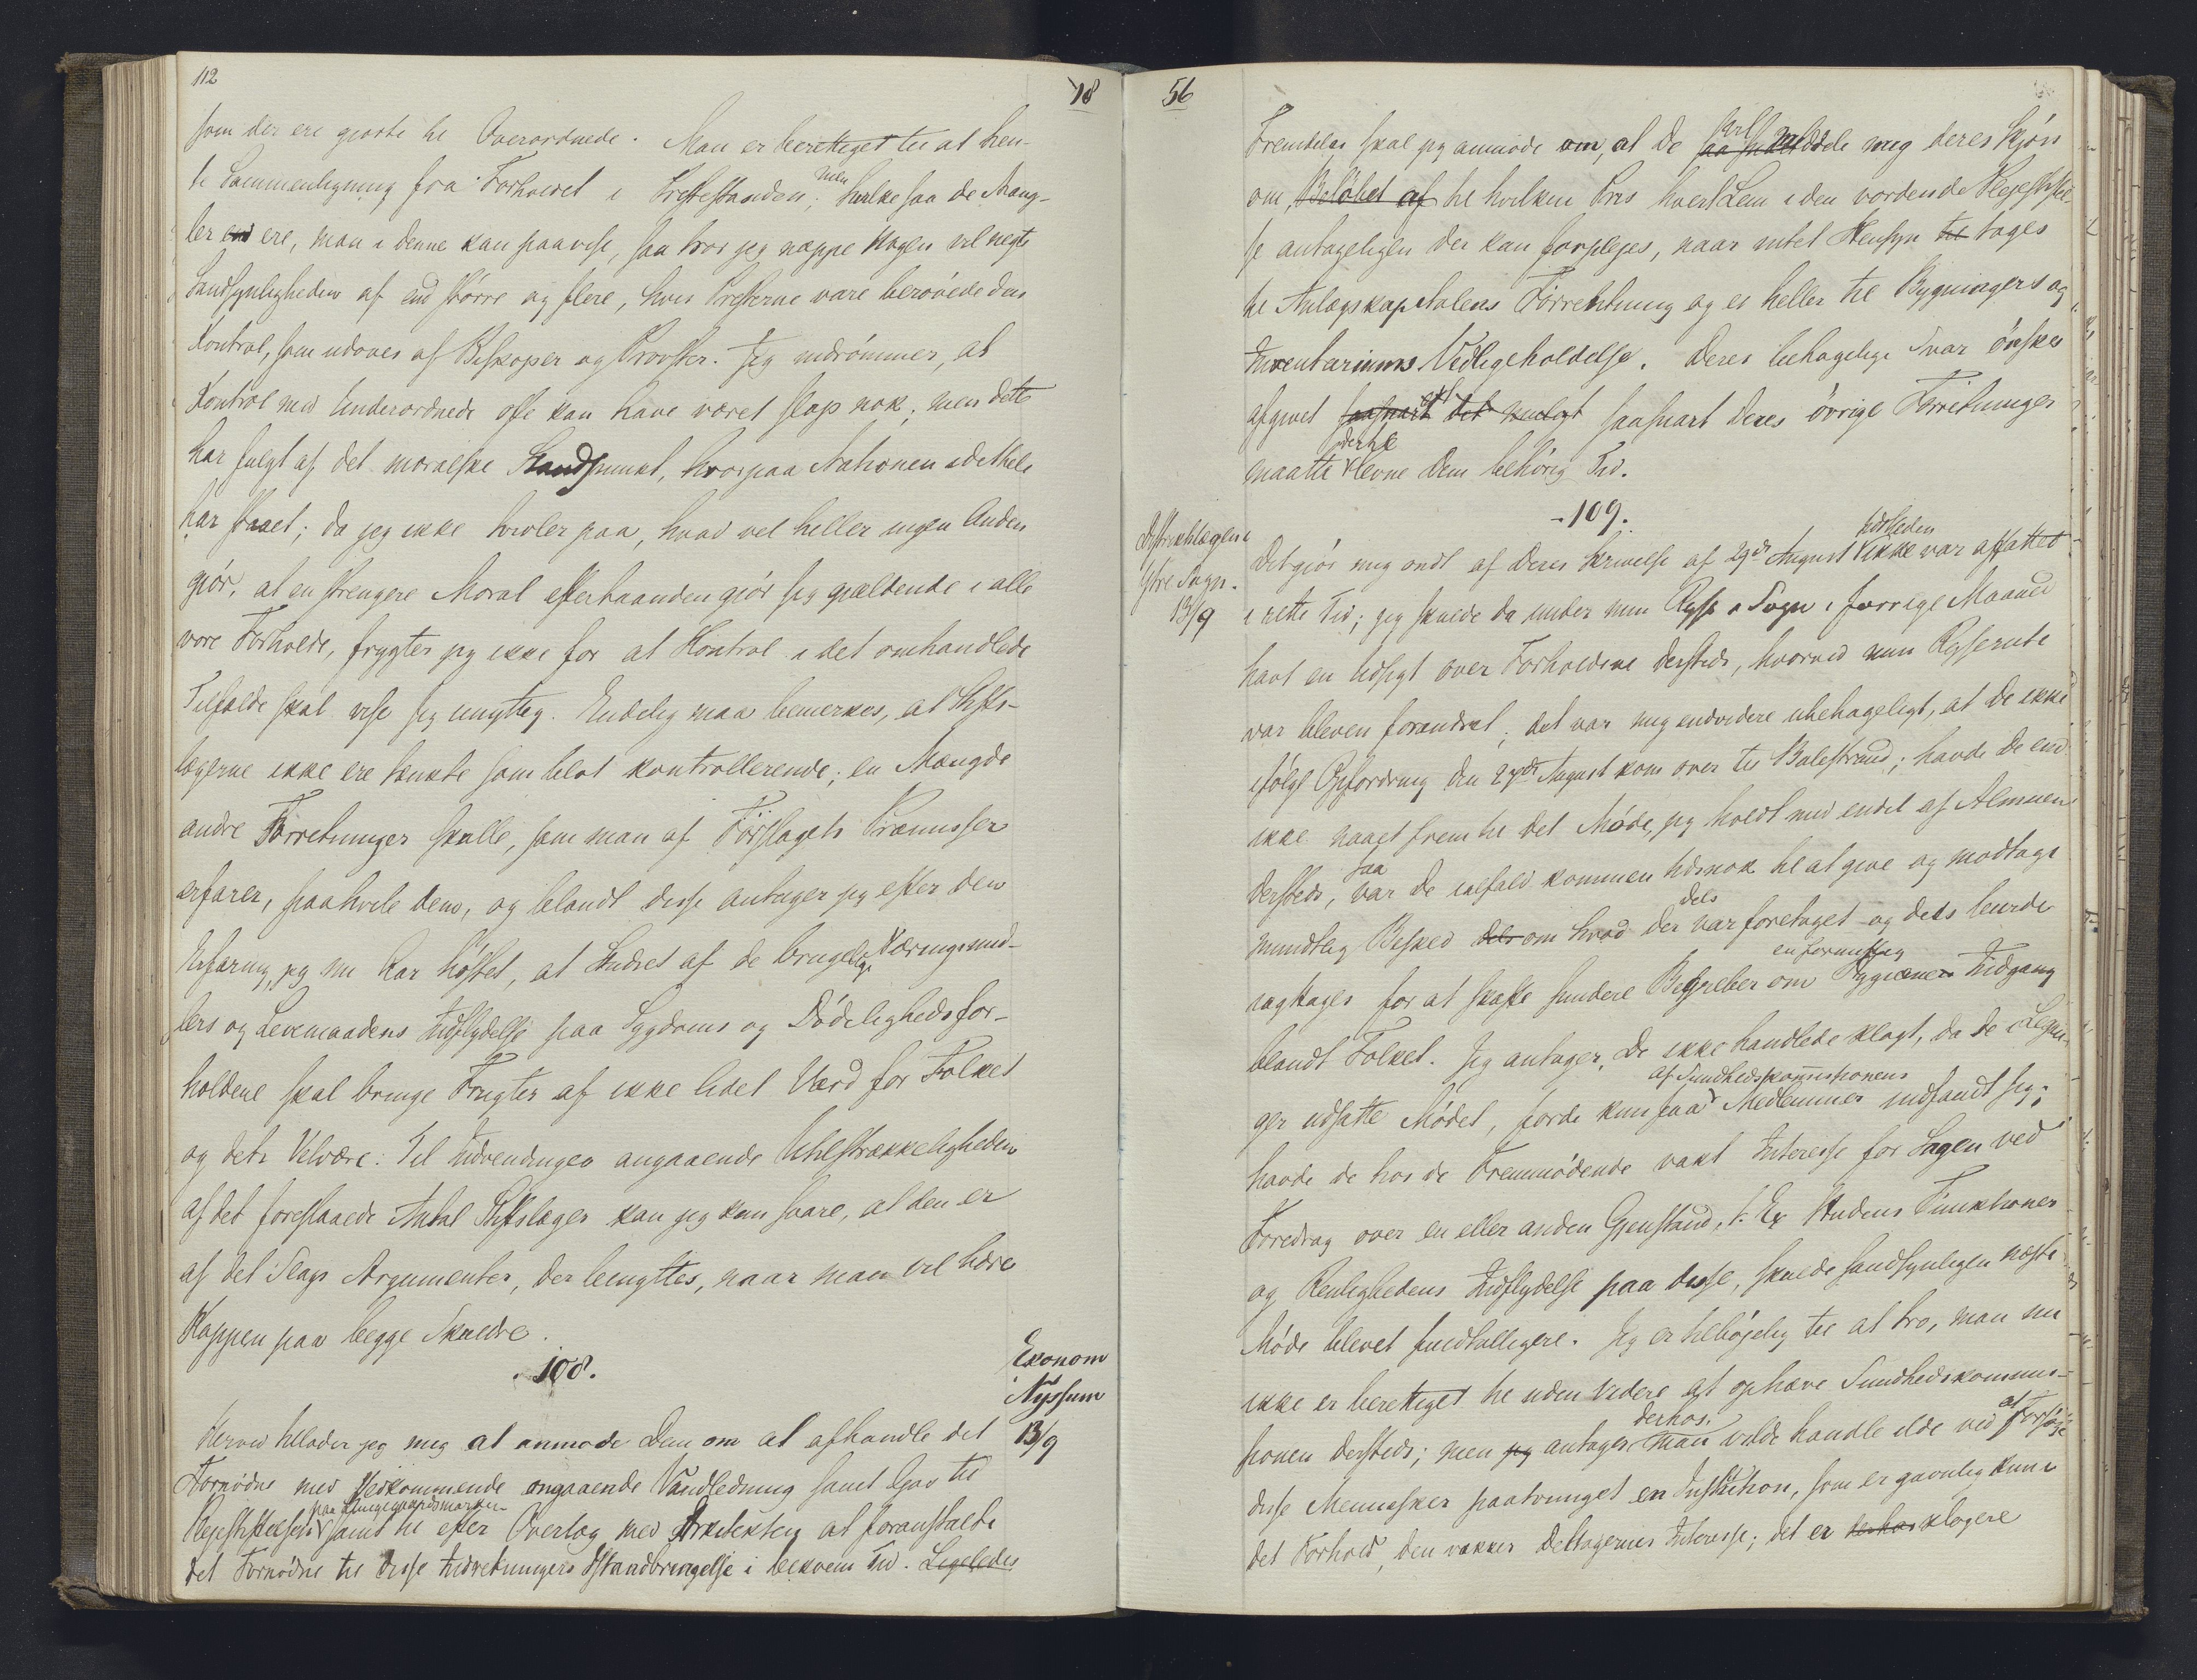 112
18
som der ere gjorte til Overordnede. Man er berettiget til at hen-
te Sammenligning fra Forholdet i Prestestanden; men hvilke saa de Mang-
ler end ere, man i denne kan paavise, saa tror jeg neppe Nogen vil negte
Sandsynligheden af end större og flere, hvis Presterne vare berövede den
Kontrol, som udöves af Biskoper og Provster. Jeg indrömmer, at
Kontrol med Underordnede ofte kan have været slap nok; men dette
har fulgt af det moralske Standpunkt, hvorpaa Nationen i det hele
har staaet; da jeg ikke tvivler paa, hvad vel heller ingen Anden
gjör, at en strengere Moral efterhaanden gjör sig gjældende i alle
vore Forholde, frygter jeg ikke for at Kontrol i det omhandlede
Tilfælde skal vise sig unyttig. Endelig maa bemerkes, at Stifts-
lægerne ikke ere tænkte som blot kontrollerende; en Mængde
andre Forretninger skulle, som man af Forslagets Præmisser
erfarer, paahvile dem, og blandt disse antager jeg efter den
Erfaring, jeg nu har höstet, at Studiet af de brugelige Næringsmid-
lers og Levemaadens Indflydelse paa Sygdoms og Dödelighedsfor-
holdene skal bringe Frugter af ikke lidet Værd for Folket
og dets Velvære. Til Indvendingen angaaende Utilstrækkeligheden
af det foreslaaede Antal Stiftslæger kan jeg kun svare, at den er
af det Slags Argumenter, der benyttes, naar man vil bære
Kappen paa begge Skuldre.
108.
Ekonom
Nyssum
13/9
Herved tillader jeg mig at anmode Dem om at afhandle det
Fornödne med Vedkommende angaaende Vandledning samt Gas til
Plejestiftelsen paa Klingegaardsmarken samt til efter Overlæg med Arkitekten at foranstalte
det Fornödne til disse Indretningers Istandbringelse i bekvem Tid. Ligeledes
56
Fremdeles skal jeg anmode om, at De vil meddele mig deres Skjön
om, Belöbet af til hvilken Pris hvert Lem i den vordende Plejestiftel-
se antageligen der kan forplejes, naar intet Hensyn til tages
til Anlægskapitalens Forrentning og ei heller til Bygningers og
Inventariums Vedligeholdelse. Deres behagelige Svar önskes
afgivet saasnart det muligt saasnart Deres övrige Forretninger
maatte dertil levne Dem behörig Tid.
109.
Distriktslægen i
Ytre Sogn.
13/9
Det gjör mig ondt af Deres Skrivelse af 29de August ikke var affattet
i rette Tid; jeg skulde da under min Rejse i Sogn i forrige Maaned
havt en Udsigt over Forholdene dersteds, hvorved min Rejserute
var bleven forandret; det var mig endvidere ubehageligt, at De ikke
ifölge Opfordring den 27de August kom over til Balestrand; havde De end
ikke naaet frem til det Möde, jeg holdt med endel af Almuen
dersteds, saa var De ialfald kommen tidsnok til at give og modtage
mundtlig Besked dels om hvad der dels var foretaget og dels burde
iagttages for at skaffe sundere Begreber om en fornuftig Hygienes Indgang
blandt Folket. Jeg antager, De ikke handlede klogt, da De i Legan-
ger udsatte Mödet, fordi kun faa af Sundhedskommissionens Medlemmer indfandt sig;
havde de hos de Fremmödende vakt Interesse for Sagen ved
Foredrag over en eller anden Gjenstand, t. Ex Hudens Funktioner
og Renlighedens Indflydelse paa disse, skulde sandsynligen næste
Möde blevet fuldtalligere. Jeg er tilböjelig til at tro, man nu
ikke er berettiget til uden videre at ophæve Sundhedskommis-
sionen dersteds; men jeg antager derhos, man vilde handle ilde ved at
disse Mennesker paatvunget en Institution, som er gavnlig kun i
det Forhold, den vækker Deltagernes Interesse; det er derhos klogere